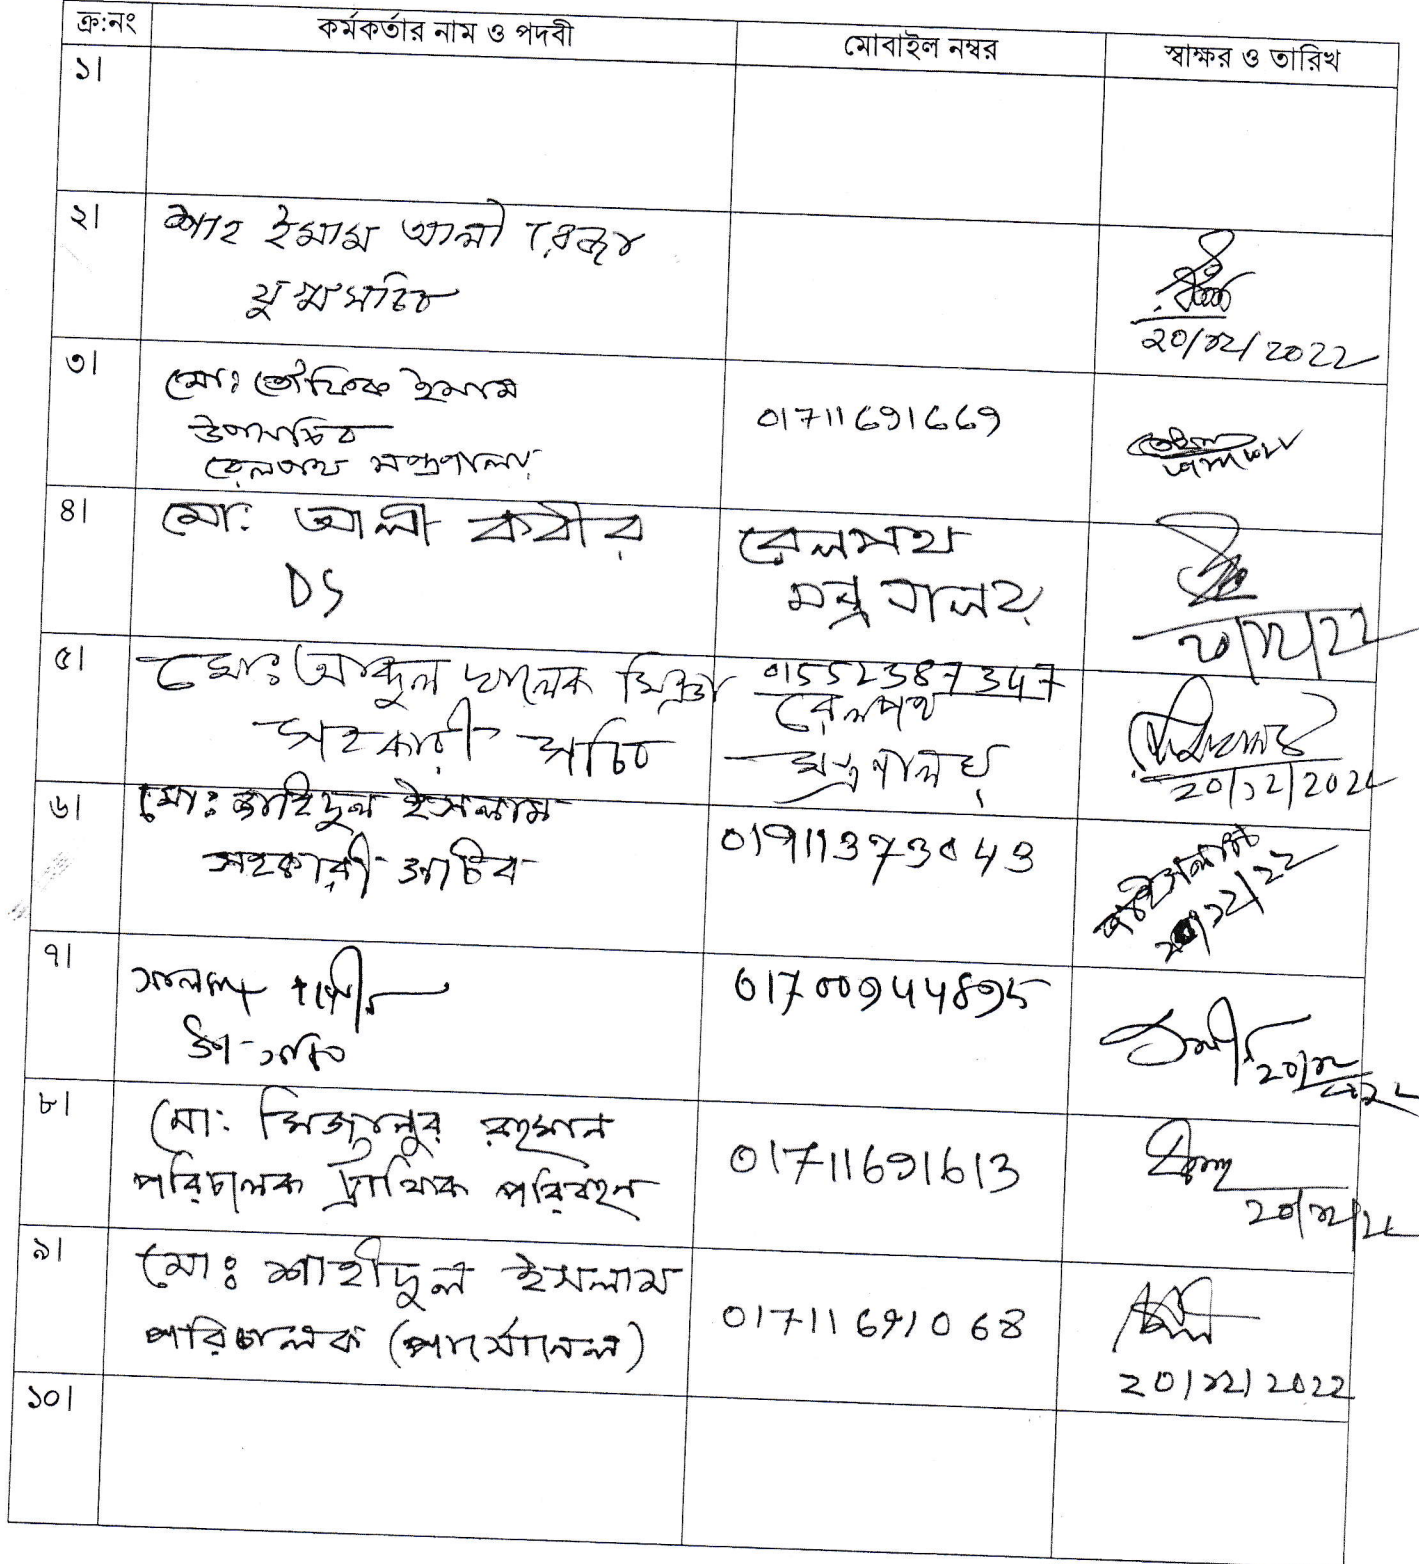 ক্র:নং কর্মকর্তার নাম ও পদবী মোবাইল নম্বর স্বাক্ষর ও তারিখ
১।
২। শাহ ইমাম আলী রেজা
যুগ্মসচিব
২০/১২/২০২২
৩। মোঃ তৌফিক ইমাম
উপসচিব
রেলপথ মন্ত্রণালয়
01711691669
৪। মো: আলী কবীর
DS
রেলপথ
মন্ত্রণালয়
২০/১২/২২
৫। মোঃ আব্দুল খালেক মিঞা
সহকারী সচিব
01552387347
রেলপথ
মন্ত্রণালয়
২০/১২/২০২২
৬। মো: জাহিদুল ইসলাম
সহকারী সচিব
01911373043
২০/১২/২২
৭।
উপ-সচিব
01700944895
২০/১২
২০২২
৮। মো: মিজানুর রহমান
পরিচালক ট্রাফিক পরিবহন
01711691613
২০/১২/২২
৯। মোঃ শাহীদুল ইসলাম
পরিচালক (পার্সোনেল)
01711691068
২০/১২/২০২২
১০।